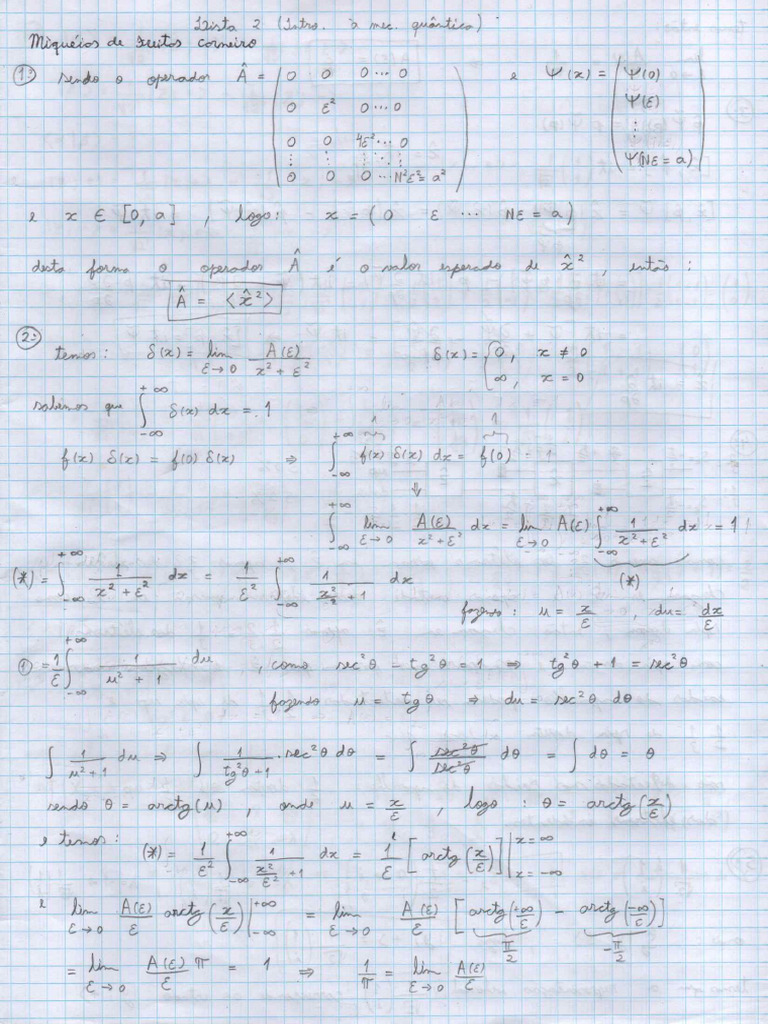 Lista 2 (Intro. à mec. quântica)
Miquéios de Freitas Carneiro
1ª) sendo o operador Â = ( 0 0 0 ⋯ 0 e Ψ(x) = ( Ψ(0)
0 ε² 0 ⋯ 0 Ψ(ε)
0 0 4ε² ⋯ 0 ⋮
⋮ ⋮ ⋮ ⋱ ⋮
0 0 0 ⋯ N²ε² = a² ) Ψ(Nε = a) )
e x ∈ [0, a] , logo: x = (0 ε ⋯ Nε = a)
desta forma o operador Â é o valor esperado de x̂² , então:
Â = ⟨x̂²⟩
2ª) temos: δ(x) = lim_{ε→0} A(ε)/(x² + ε²) δ(x) = { 0, x ≠ 0
∞, x = 0
sabemos que ∫_{-∞}^{+∞} δ(x) dx = 1
f(x) δ(x) = f(0) δ(x) ⇒ ∫_{-∞}^{+∞} f(x) δ(x) dx = f(0) = 1
1 1
⇓
∫_{-∞}^{+∞} lim_{ε→0} A(ε)/(x² + ε²) dx = lim_{ε→0} A(ε) ∫_{-∞}^{+∞} 1/(x² + ε²) dx = 1
(*)
(*) = ∫_{-∞}^{+∞} 1/(x² + ε²) dx = 1/ε² ∫_{-∞}^{+∞} 1/(x²/ε² + 1) dx
fazendo: u = x/ε , du = dx/ε
① = 1/ε ∫_{-∞}^{+∞} 1/(u² + 1) du , como sec²θ − tg²θ = 1 ⇒ tg²θ + 1 = sec²θ
fazendo u = tgθ ⇒ du = sec²θ dθ
∫ 1/(u²+1) du ⇒ ∫ 1/(tg²θ+1) · sec²θ dθ = ∫ sec²θ/sec²θ dθ = ∫ dθ = θ
sendo θ = arctg(u) , onde u = x/ε , logo: θ = arctg(x/ε)
e temos: (*) = 1/ε² ∫_{-∞}^{+∞} 1/(x²/ε² + 1) dx = 1/ε [arctg(x/ε)]|_{x=-∞}^{x=∞}
e lim_{ε→0} A(ε)/ε arctg(x/ε)|_{-∞}^{+∞} = lim_{ε→0} A(ε)/ε [arctg(+∞/ε) − arctg(−∞/ε)]
π/2 −π/2
= lim_{ε→0} A(ε)/ε π = 1 ⇒ 1/π = lim_{ε→0} A(ε)/ε